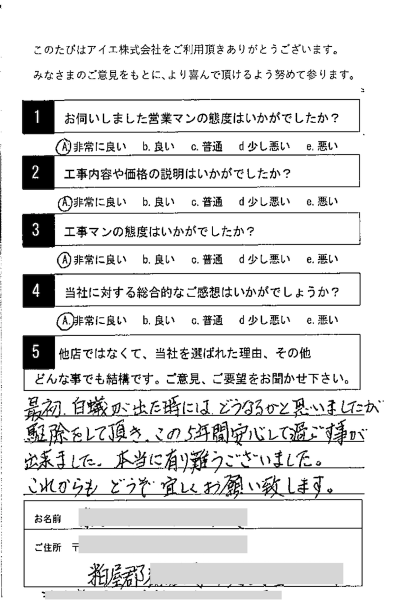 このたびはアイエ株式会社をご利用頂きありがとうございます。
みなさまのご意見をもとに、より喜んで頂けるよう努めて参ります。
1 お伺いしました営業マンの態度はいかがでしたか?
A.非常に良い b.良い c.普通 d少し悪い e.悪い
2 工事内容や価格の説明はいかがでしたか?
A.非常に良い b.良い c.普通 d少し悪い e.悪い
3 工事マンの態度はいかがでしたか?
A.非常に良い b.良い c.普通 d少し悪い e.悪い
4 当社に対する総合的なご感想はいかがでしょうか?
A.非常に良い b.良い c.普通 d少し悪い e.悪い
5 他店ではなくて、当社を選ばれた理由、その他
どんな事でも結構です。ご意見、ご要望をお聞かせ下さい。
最初、白蟻が出た時には、どうなるかと思いましたが
駆除をして頂き、この5年間安心して過ごす事が
出来ました。本当に有り難うございました。
これからも どうぞ宜しくお願い致します。
お名前
ご住所 〒
粕屋郡